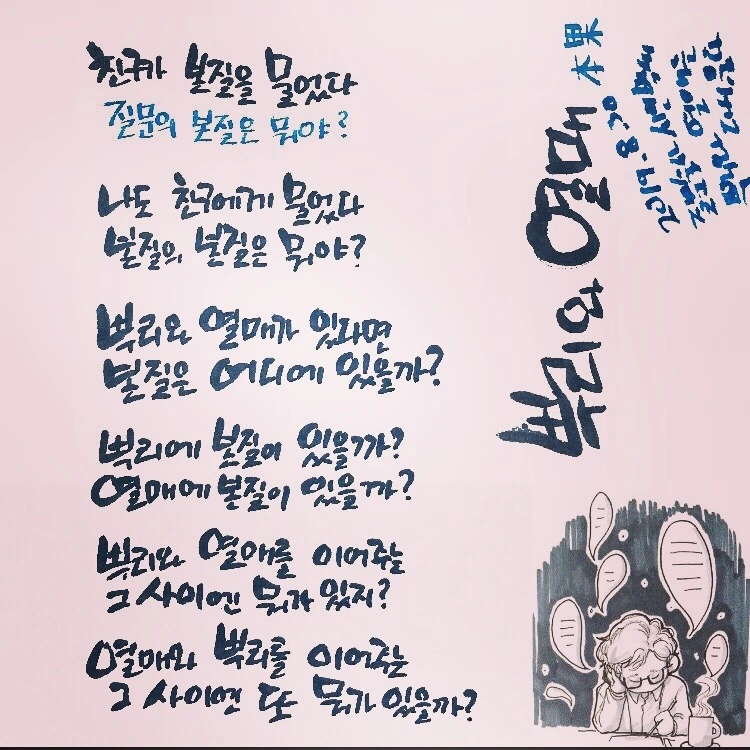 친구가 본질을 물었다
질문의 본질은 뭐야?
나도 친구에게 물었다
본질의 본질은 뭐야?
뿌리와 열매가 있다면
본질은 어디에 있을까?
뿌리에 본질이 있을까?
열매에 본질이 있을까?
뿌리와 열매를 이어주는
그 사이엔 뭐가 있지?
열매와 뿌리를 이어주는
그 사이엔 또 뭐가 있을까?
뿌리와 열매
本果
2019. 8. 20